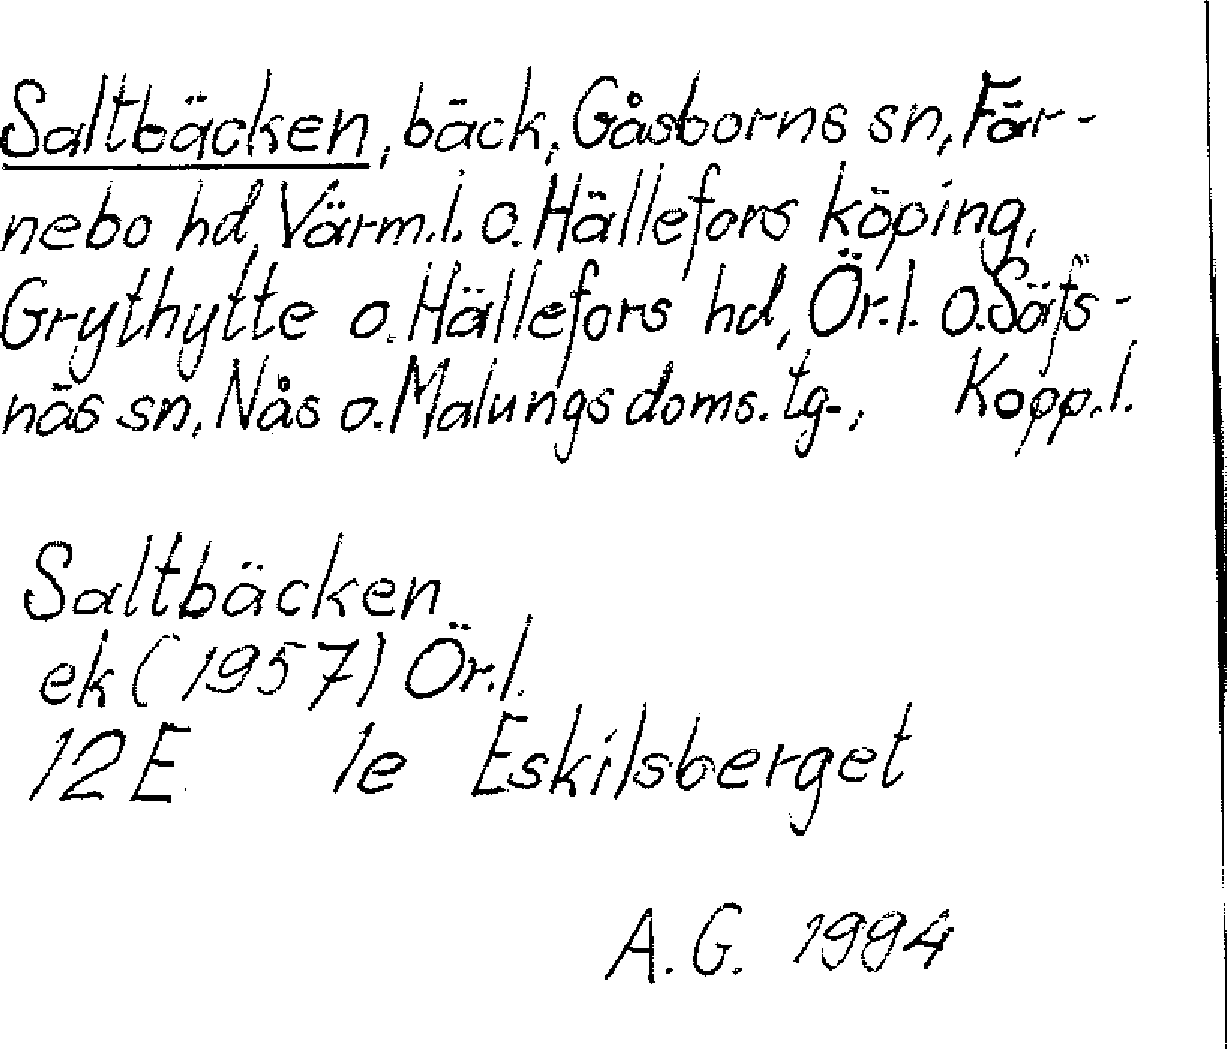 Saltbäcken, bäck, Gåsborns sn, Fär-
nebo hd, Värm.l. o. Hällefors köping,
Grythytte o. Hällefors hd, Ör.l. o. Säfs-
näs sn, Nås o. Malungs doms. tg., Kopp.l.
Saltbäcken
ek (1957) Ör.l.
12E 1e Eskilsberget
A.G. 1994